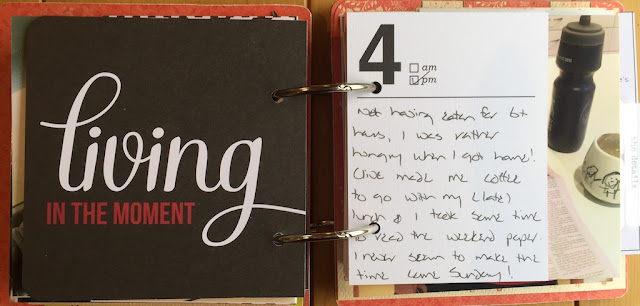 living
IN THE MOMENT
4
am
pm
Not having eaten for 6+
hours, I was rather
hungry when I got home!
Clive made me coffee
to go with my (late)
lunch & I took some time
to read the weekend paper.
I never seem to make the
time come Sunday!
the details